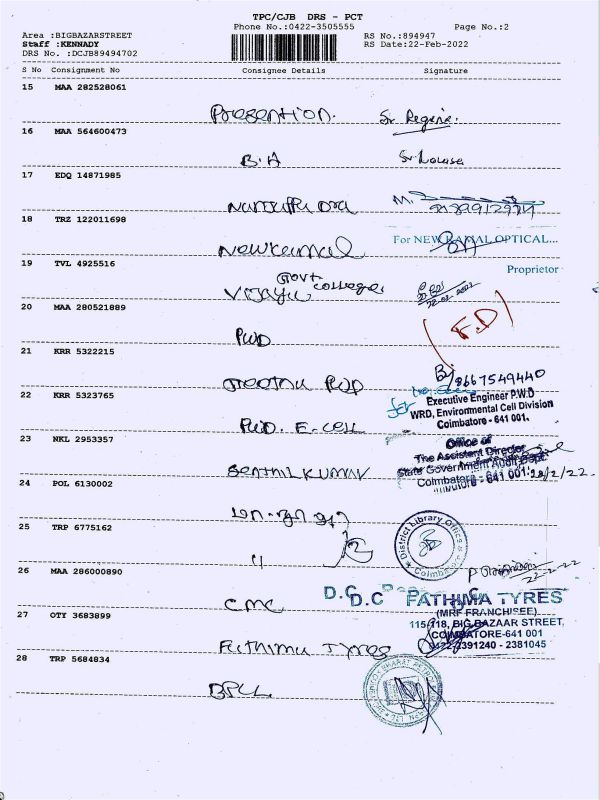 TPC/CJB DRS - PCT
Phone No.:0422-3505555
Page No.:2
Area :BIGBAZARSTREET
RS No.:894947
Staff :KENNADY
RS Date:22-Feb-2022
DRS No. :DCJB89494702
S No Consignment No Consignee Details Signature
15 MAA 282528061
Presention. Sr Regina.
16 MAA 564600473
B.A Sr Louise
17 EDQ 14871985
M.
18 TRZ 122011698
New Kamal For NEW KAMAL OPTICAL...
Proprietor
19 TVL 4925516
Govt
Vijaya College
20 MAA 280521889
PWD (F.D)
21 KRR 5322215
Geetha PWD 9667549440
22 KRR 5323765
PWD. E-Cell for Executive Engineer P.W.D
WRD, Environmental Cell Division
Coimbatore - 641 001.
23 NKL 2953357
Senthil Kumar Office of
The Assistant Director
State Government Audit Dept.
Coimbatore - 641 001.
24 POL 6130002
25 TRP 6775162
11 District Library Office
Coimbatore
26 MAA 286000890
22-2-22
CMC D.C D.C
27 OTY 3683899
Fathima Tyres FATHIMA TYRES
(MRF FRANCHISEE)
115-118, BIG BAZAAR STREET,
COIMBATORE-641 001
0422-2391240 - 2381045
28 TRP 5684834
BPCL